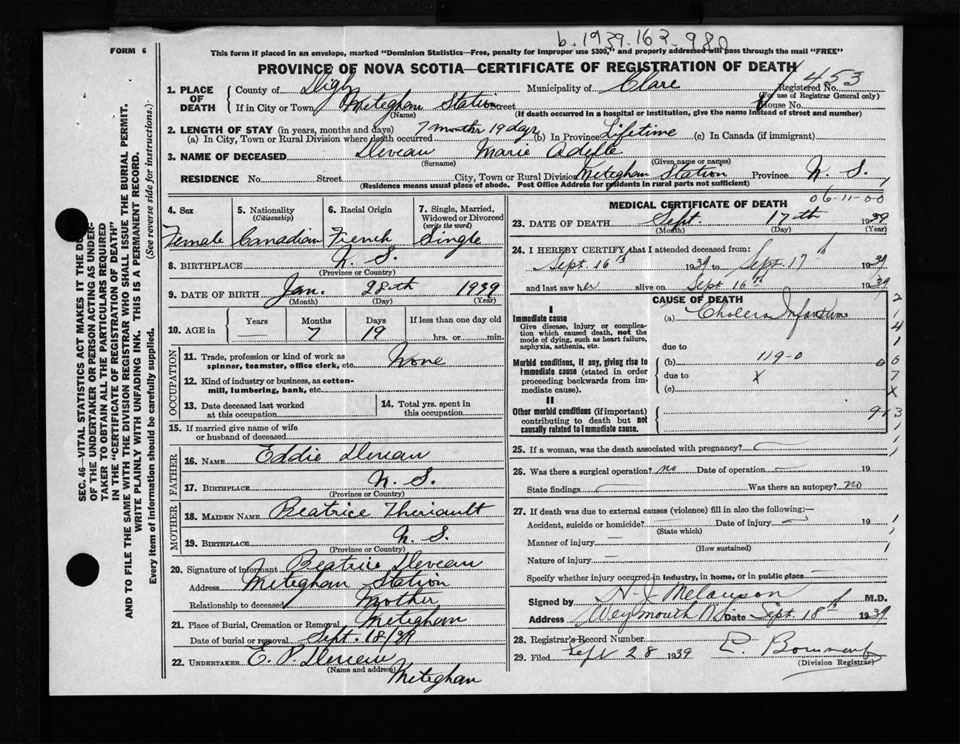 b. 1939.163-980
FORM 6
This form if placed in an envelope, marked "Dominion Statistics—Free, penalty for improper use $300," and properly addressed will pass through the mail "FREE"
PROVINCE OF NOVA SCOTIA—CERTIFICATE OF REGISTRATION OF DEATH
1. PLACE OF DEATH County of Digby Municipality of Clare Registered No. 453
(For use of Registrar General only)
If in City or Town Meteghan Station Street House No.
(Name) (If death occurred in a hospital or institution, give its name instead of street and number)
2. LENGTH OF STAY (in years, months and days)
(a) In City, Town or Rural Division where death occurred 7 months 19 days (b) In Province Lifetime (c) In Canada (if immigrant)
3. NAME OF DECEASED Deveau Marie Adelle
(Surname) (Given name or names)
RESIDENCE No. Street City, Town or Rural Division Meteghan Station Province N. S.
(Residence means usual place of abode. Post Office Address for residents in rural parts not sufficient)
4. Sex 5. Nationality (Citizenship) 6. Racial Origin 7. Single, Married, Widowed or Divorced (write the word)
Female Canadian French Single
8. BIRTHPLACE N. S.
(Province or Country)
9. DATE OF BIRTH Jan. 28th 1939
(Month) (Day) (Year)
10. AGE in Years Months Days If less than one day old
7 19 hrs. or min.
OCCUPATION
11. Trade, profession or kind of work as spinner, teamster, office clerk, etc. None
12. Kind of industry or business, as cotton-mill, lumbering, bank, etc.
13. Date deceased last worked at this occupation 14. Total yrs. spent in this occupation
15. If married give name of wife or husband of deceased
FATHER
16. NAME Eddie Deveau
17. BIRTHPLACE N. S.
(Province or Country)
MOTHER
18. MAIDEN NAME Beatrice Theriault
19. BIRTHPLACE N. S.
(Province or Country)
20. Signature of informant Beatrice Deveau
Address Meteghan Station
Relationship to deceased Mother
21. Place of Burial, Cremation or Removal Meteghan
Date of burial or removal Sept. 18/39
22. UNDERTAKER E. P. Deveau
(Name and address) Meteghan
MEDICAL CERTIFICATE OF DEATH 06-11-00
23. DATE OF DEATH Sept. 17th 1939
(Month) (Day) (Year)
24. I HEREBY CERTIFY that I attended deceased from:
Sept. 16th 1939 to Sept 17th 1939
and last saw her alive on Sept 16th 1939
CAUSE OF DEATH
I
Immediate cause (a) Cholera Infantum
Give disease, injury or complication which caused death, not the mode of dying, such as heart failure, asphyxia, asthenia, etc.
due to
Morbid conditions, if any, giving rise to immediate cause (stated in order proceeding backwards from immediate cause).
(b) 119-0
due to X
(c)
II
Other morbid conditions (if important) contributing to death but not causally related to immediate cause.
25. If a woman, was the death associated with pregnancy?
26. Was there a surgical operation? no Date of operation 19
State findings Was there an autopsy? no
27. If death was due to external causes (violence) fill in also the following:—
Accident, suicide or homicide? Date of injury 19
(State which)
Manner of injury
(How sustained)
Nature of injury
Specify whether injury occurred in industry, in home, or in public place
Signed by H. J. Melanson M.D.
Address Weymouth N.S. Date Sept. 18th 1939
28. Registrar's Record Number
29. Filed Sept 28 1939
(Division Registrar)
SEC. 46—VITAL STATISTICS ACT MAKES IT THE DUTY
OF THE UNDERTAKER OR PERSON ACTING AS UNDER-
TAKER TO OBTAIN ALL THE PARTICULARS REQUIRED
IN THE "CERTIFICATE OF REGISTRATION OF DEATH"
AND TO FILE THE SAME WITH THE DIVISION REGISTRAR WHO SHALL ISSUE THE BURIAL PERMIT.
WRITE PLAINLY WITH UNFADING INK. THIS IS A PERMANENT RECORD.
Every item of information should be carefully supplied. (See reverse side for instructions.)